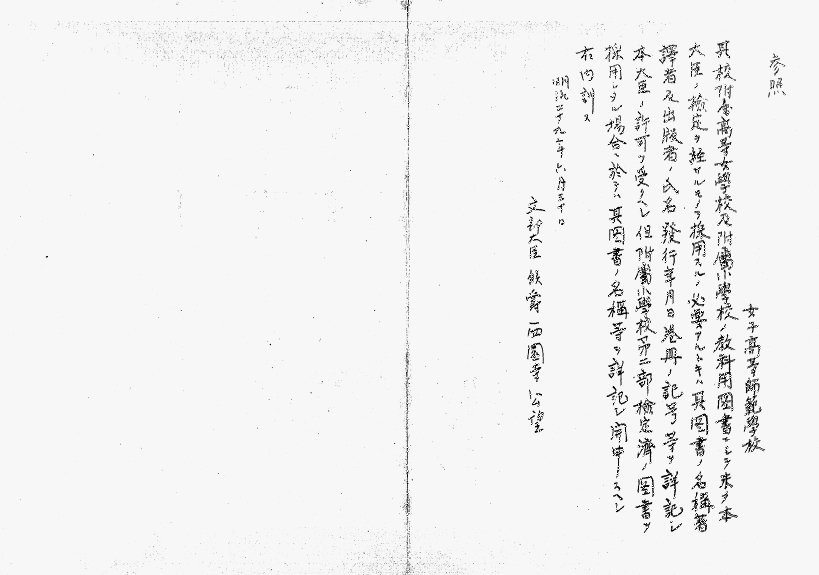 参照
女子高等師範學校
其校附属高等女學校及附屬小學校ノ教科用圖書ニシテ未タ本
大臣ノ檢定ヲ経サルモノヲ採用スルノ必要アルトキハ其圖書ノ名稱著
譯者及出版者ノ氏名發行年月日巻冊ノ記号等ヲ詳記シ
本大臣ノ許可ヲ受クヘシ但附屬小學校第二部檢定濟ノ圖書ヲ
採用シタル場合ニ於テハ其圖書ノ名稱等ヲ詳記シ開申スヘシ
右内訓ス
明治二十九年六月三十日
文部大臣 侯爵 西園寺公望